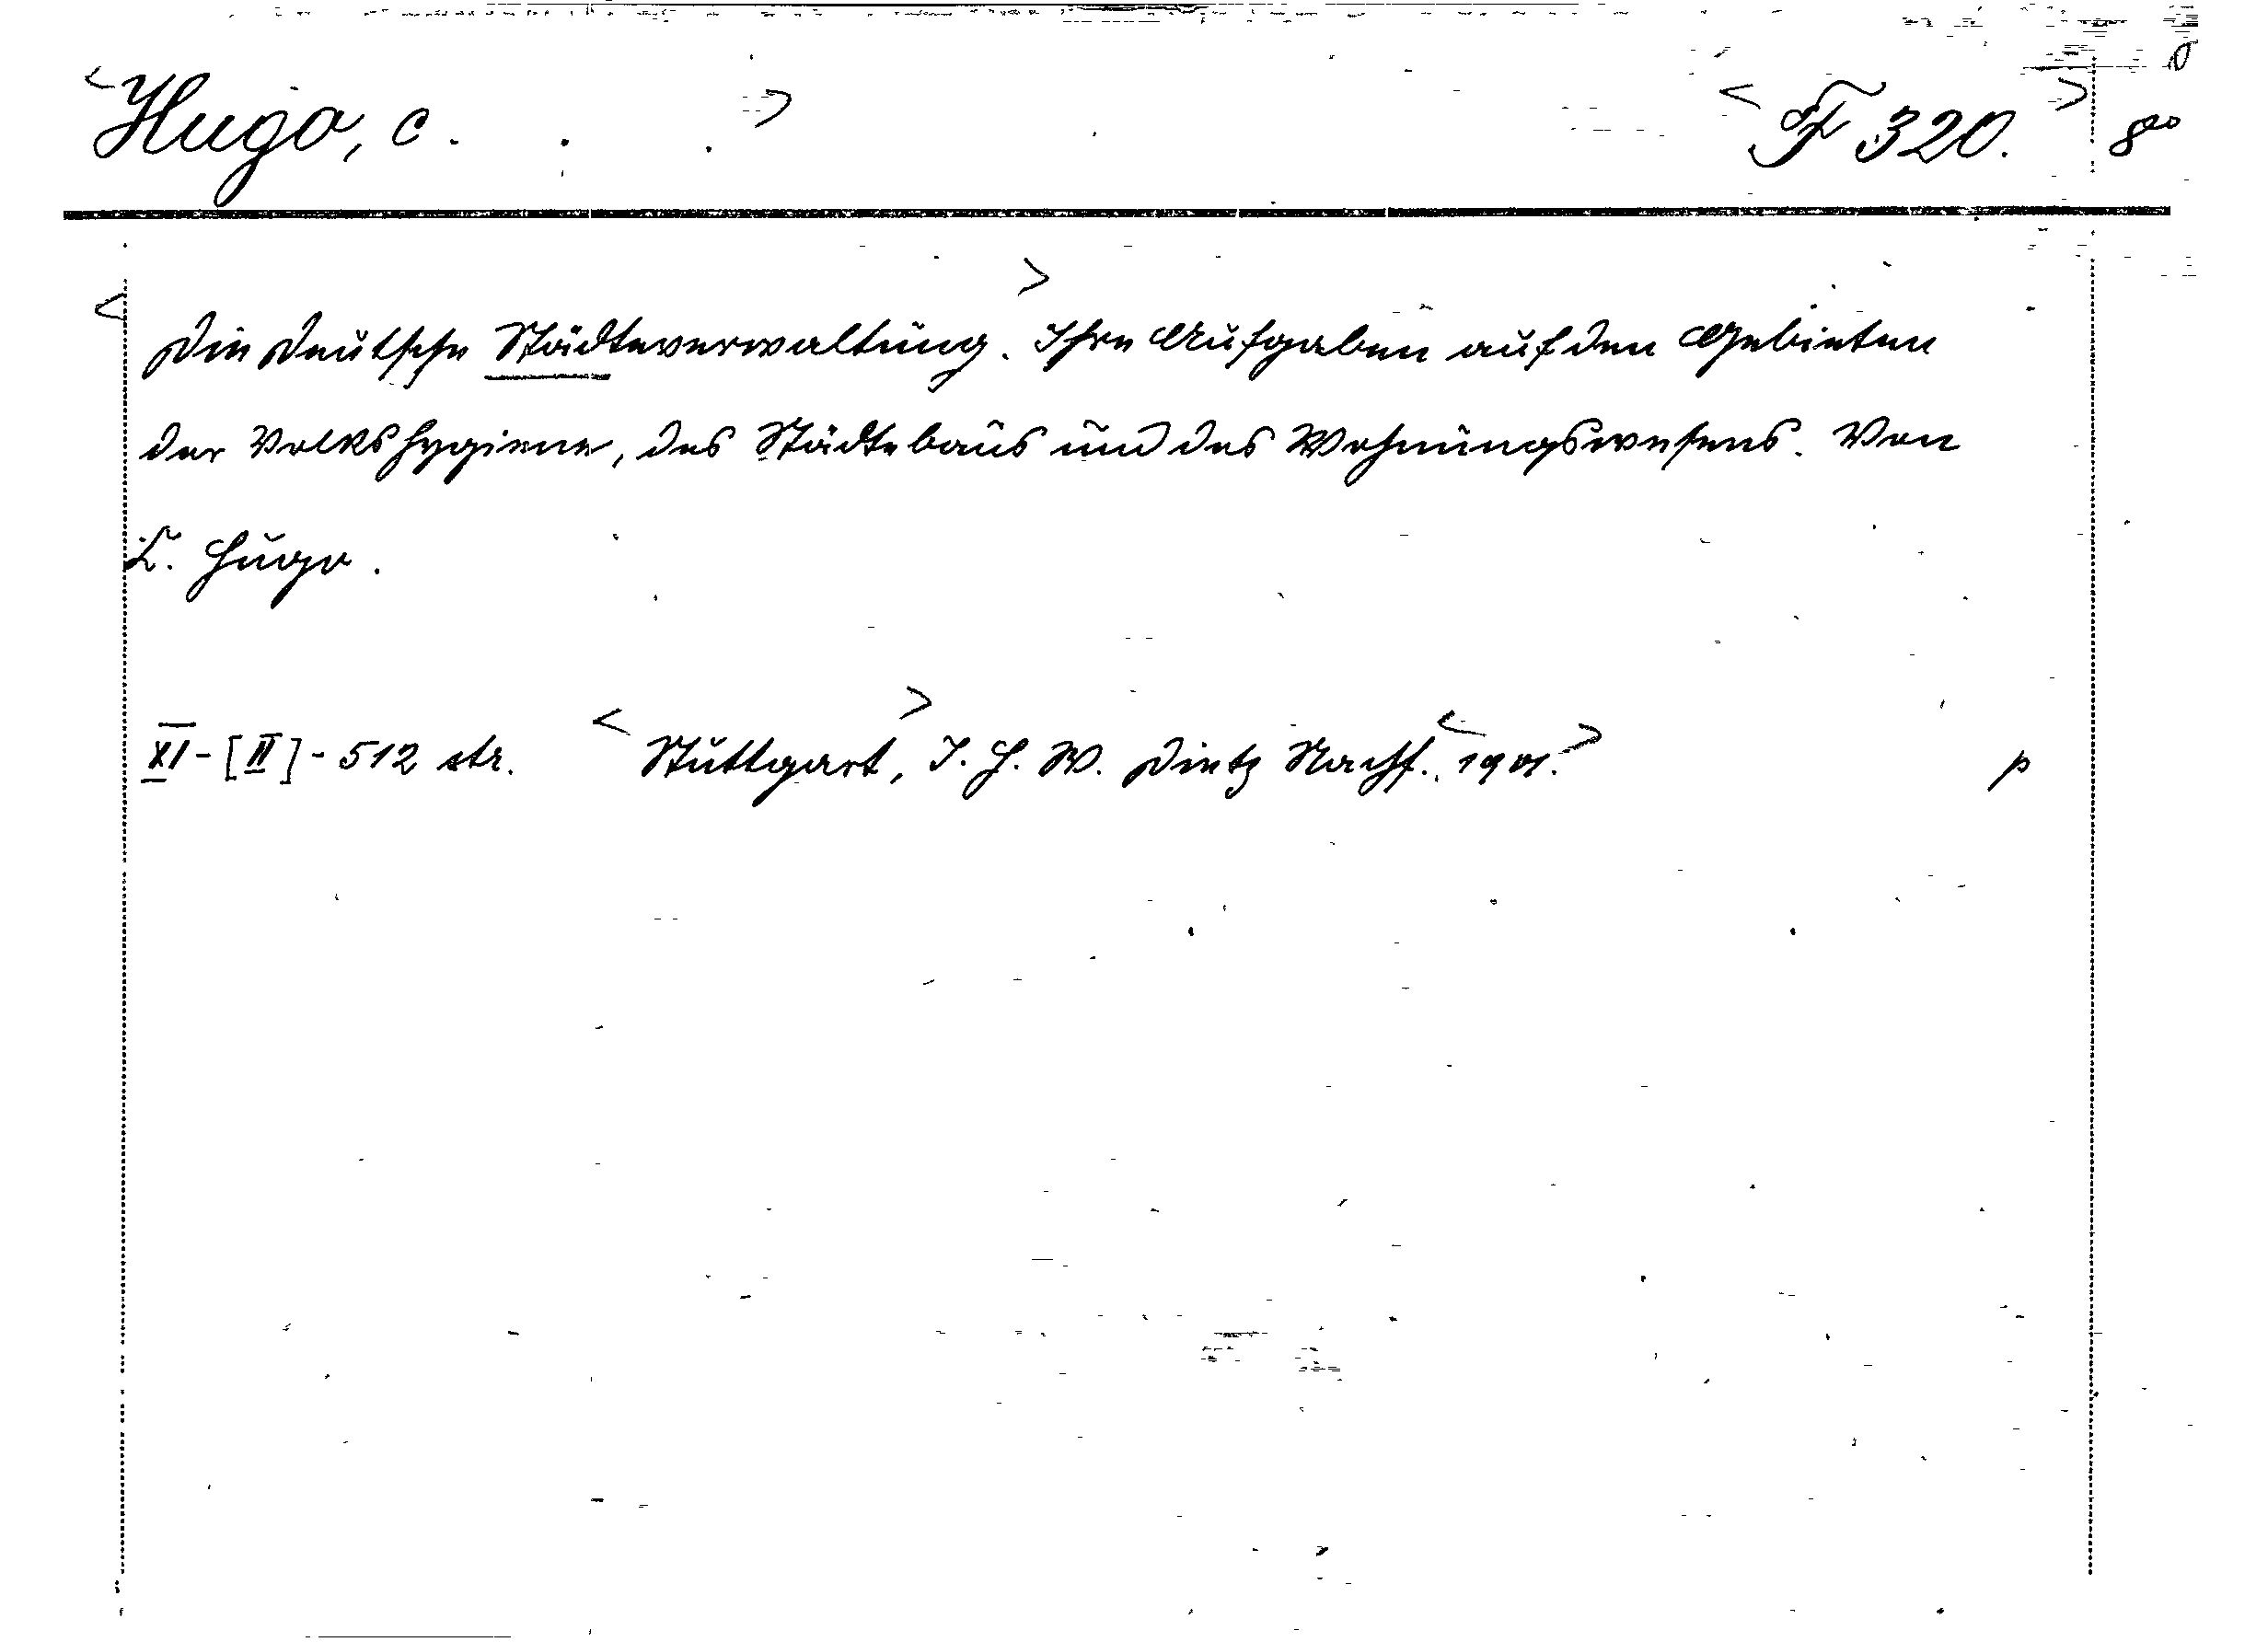 Hugo, C. F 320. 8°
Die deutsche Städteverwaltung. Ihre Aufgaben auf den Gebieten
der Volkshygiene, des Städtebaus und des Wohnungswesens. Von
C. Hugo.
XI-[II]-512 str. Stuttgart, J. H. W. Dietz Nachf. 1901. p